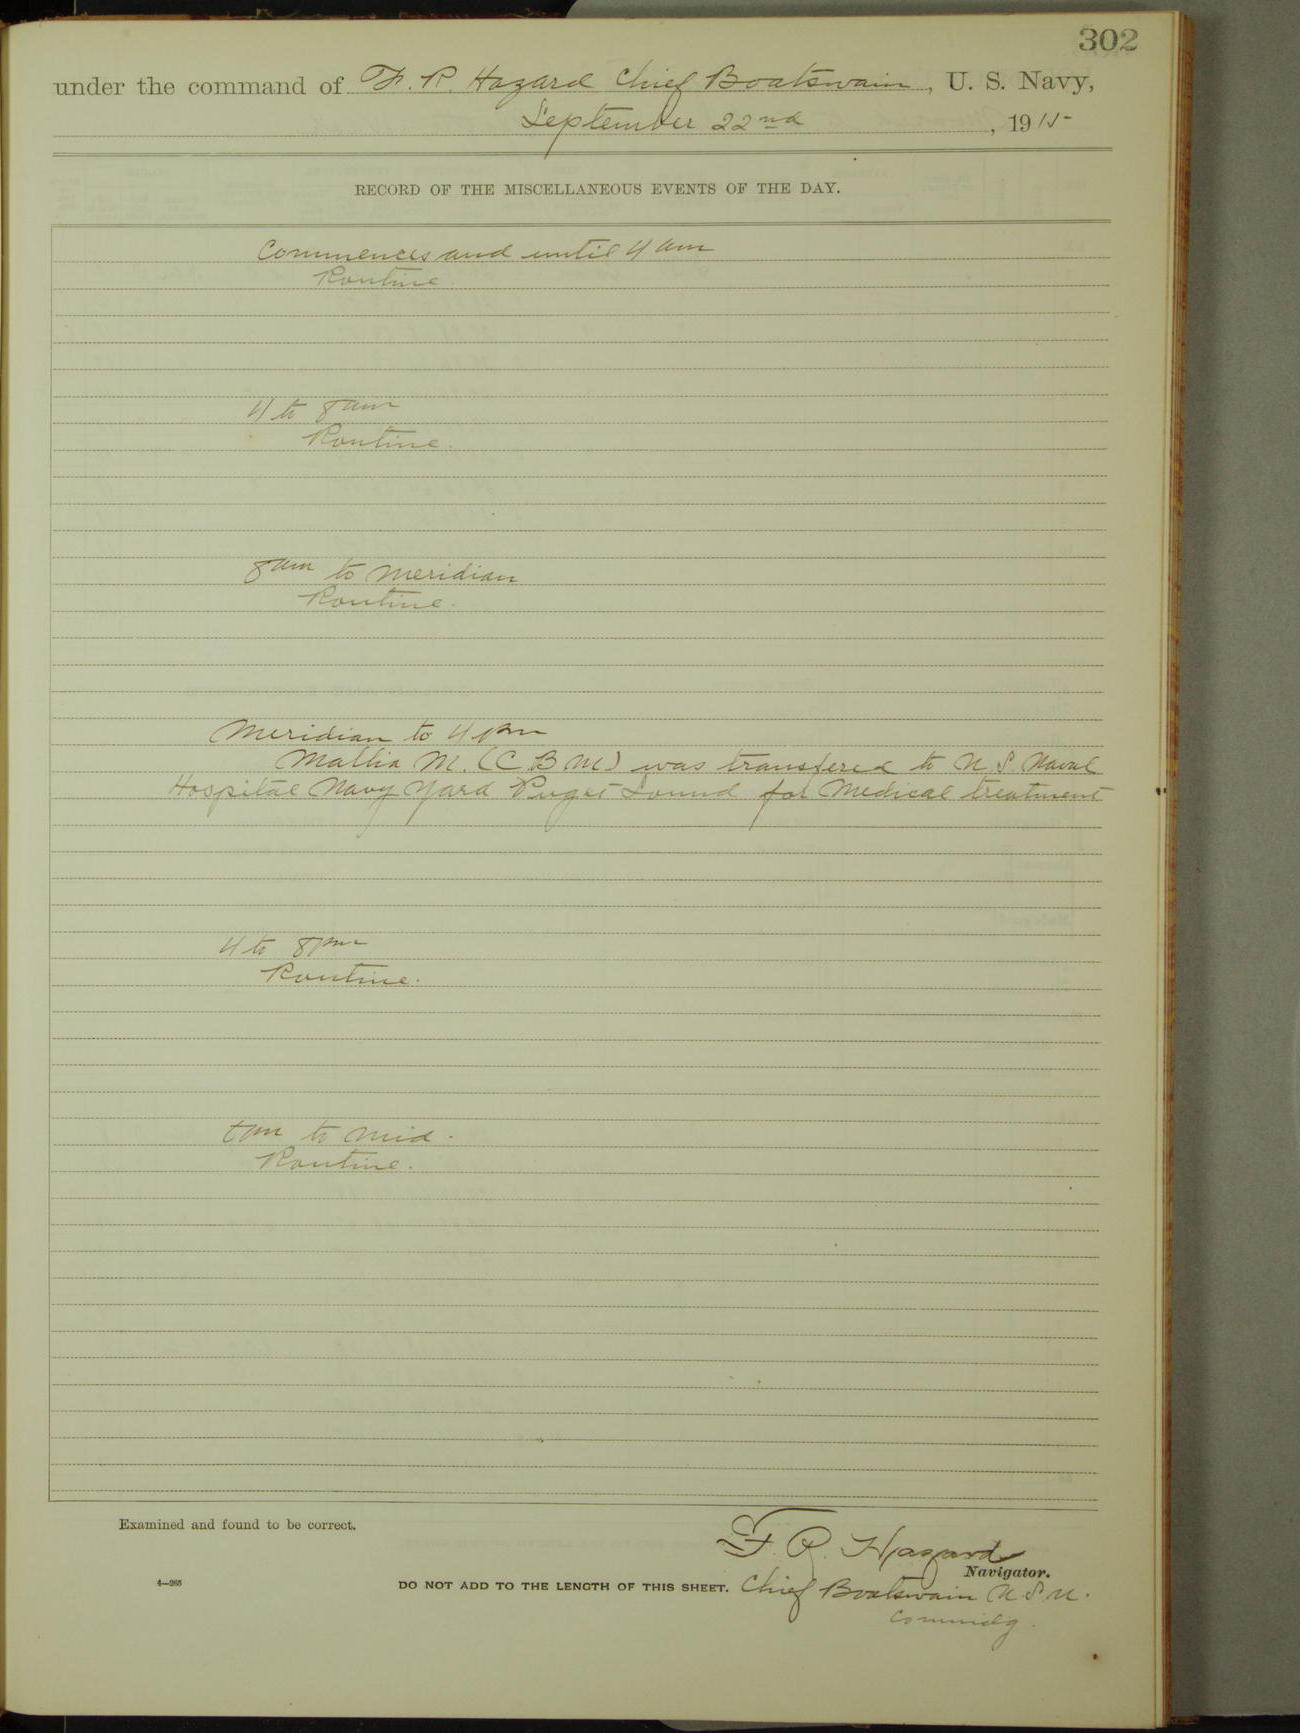 302
under the command of F. R. Hazard Chief Boatswain, U. S. Navy,
September 22nd, 1915
RECORD OF THE MISCELLANEOUS EVENTS OF THE DAY.
Commences and until 4 am
Routine.
4 to 8 am
Routine.
8 am to Meridian
Routine.
Meridian to 4 pm
Mallia M. (C.B.M) was transfered to U.S. Naval
Hospital Navy Yard Puget Sound for Medical treatment
4 to 8 pm
Routine.
pm to Mid.
Routine.
Examined and found to be correct.
F. R. Hazard
Navigator.
4—265
DO NOT ADD TO THE LENGTH OF THIS SHEET.
Chief Boatswain U.S.N.
Commidg.